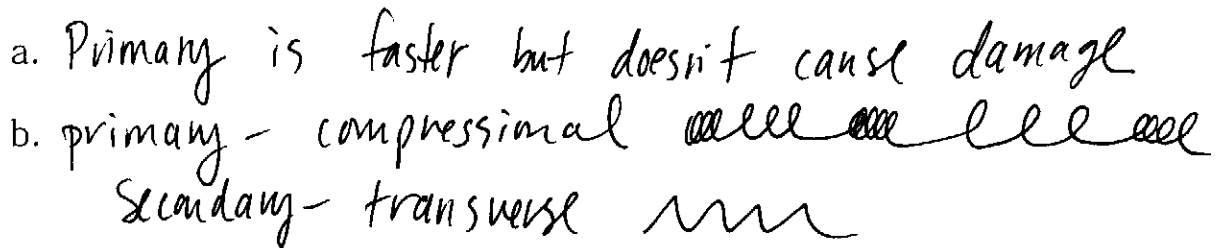 a. Primary is faster but doesn't cause damage
b. primary - compressional
Secondary - transverse